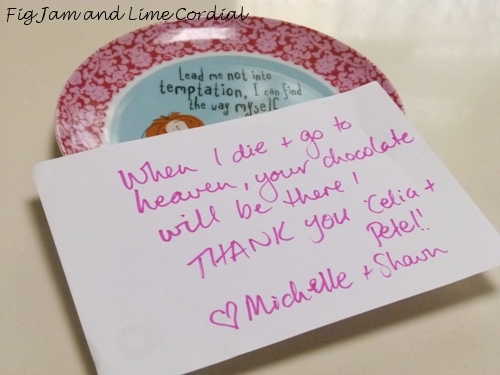 Fig Jam and Lime Cordial
Lead me not into
temptation, I can find
the way myself
When I die + go to
heaven, your chocolate
will be there!
THANK YOU Celia +
Pete!!
♡ Michelle + Shawn